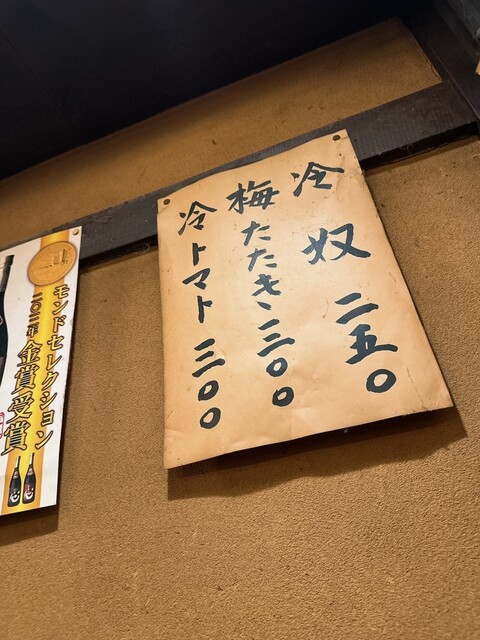 冷奴 二五〇
梅たたき 三〇〇
冷トマト 三〇〇
モンドセレクション
二〇二二年
金賞受賞